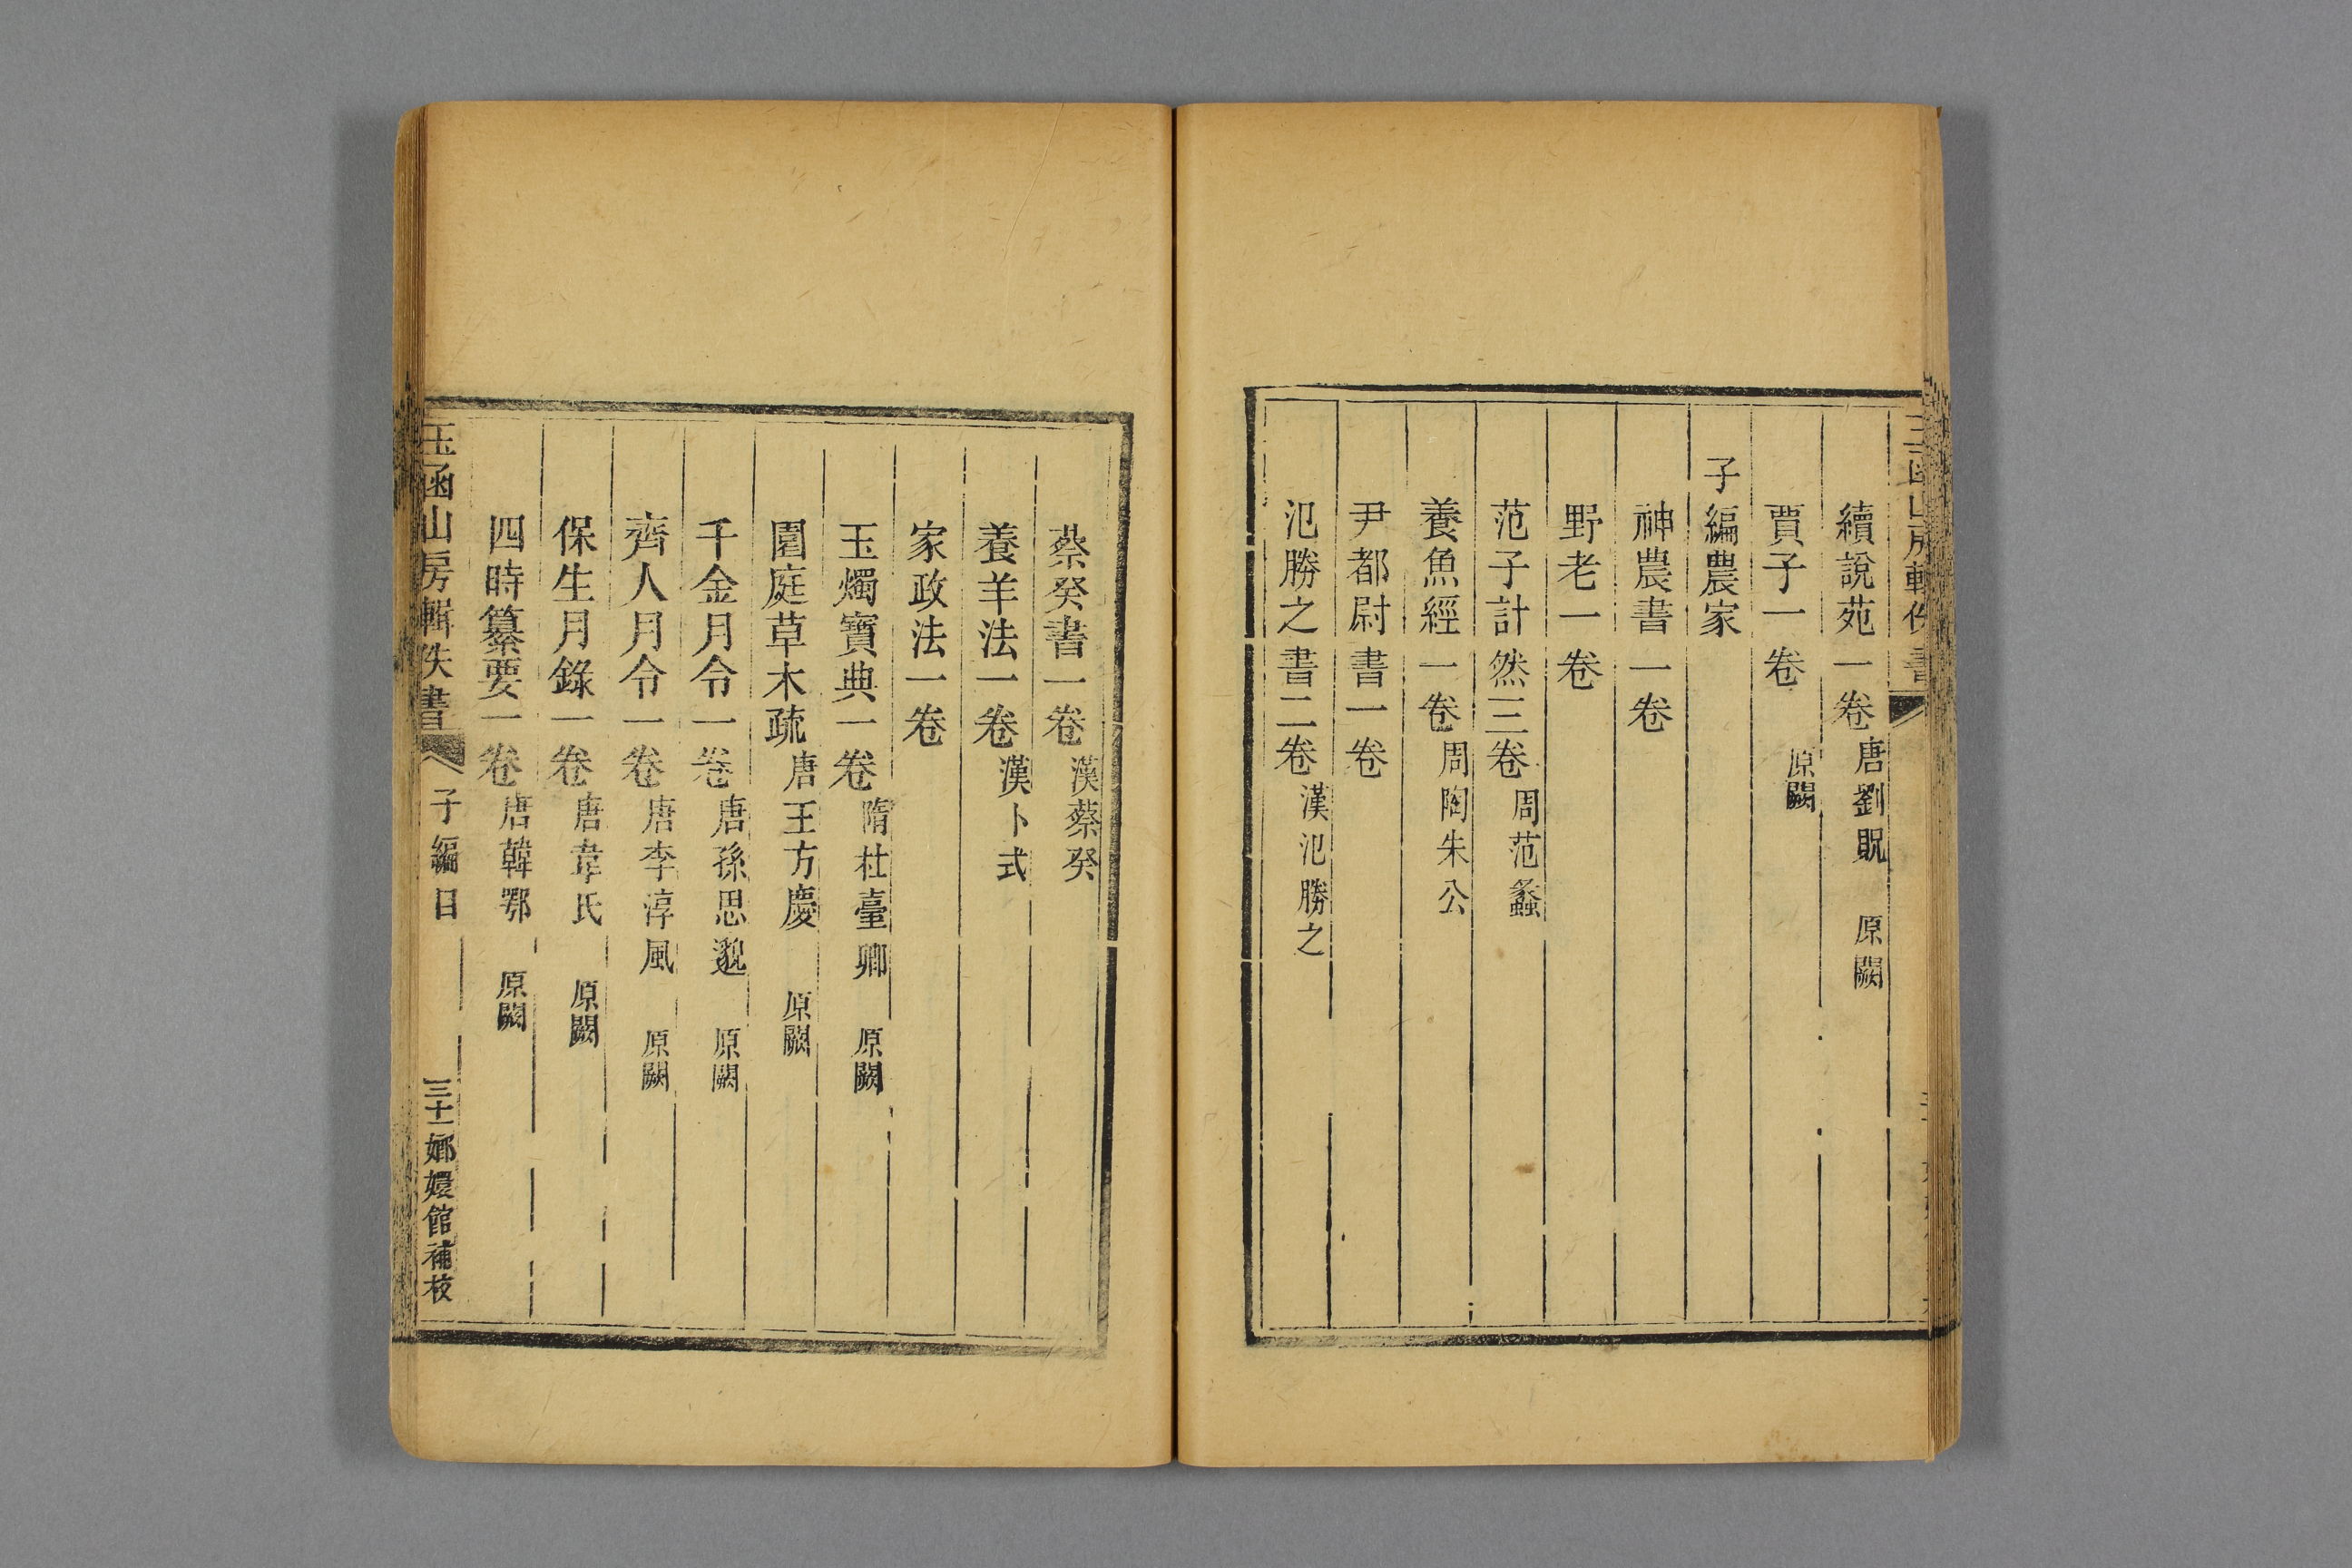 續說苑一卷唐劉貺 原闕
賈子一卷 原闕
子編農家
神農書一卷
野老一卷
范子計然三卷周范蠡
養魚經一卷周陶朱公
尹都尉書一卷
氾勝之書二卷漢氾勝之
蔡癸書一卷漢蔡癸
養羊法一卷漢卜式
家政法一卷
玉燭寶典一卷隋杜臺卿 原闕
園庭草木疏唐王方慶 原闕
千金月令一卷唐孫思邈 原闕
齊人月令一卷唐李淳風 原闕
保生月錄一卷唐韋氏 原闕
四時纂要一卷唐韓鄂 原闕
玉函山房輯佚書 子編目 三十一 嫏嬛館補校